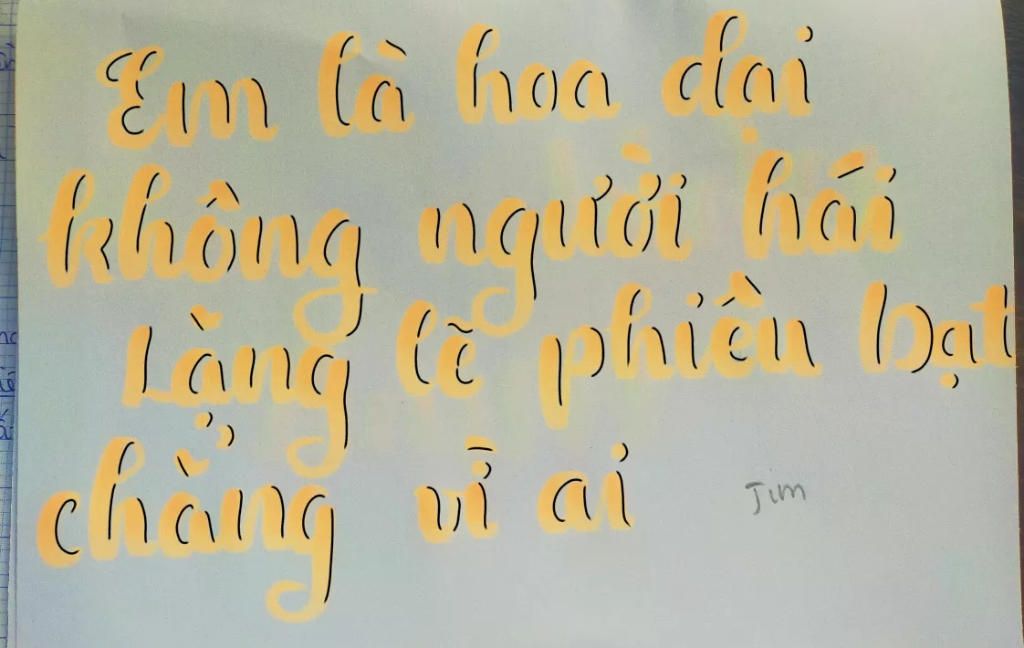 Em là hoa dại
không người hái
Lặng lẽ phiêu bạt
chẳng vì ai
Jim